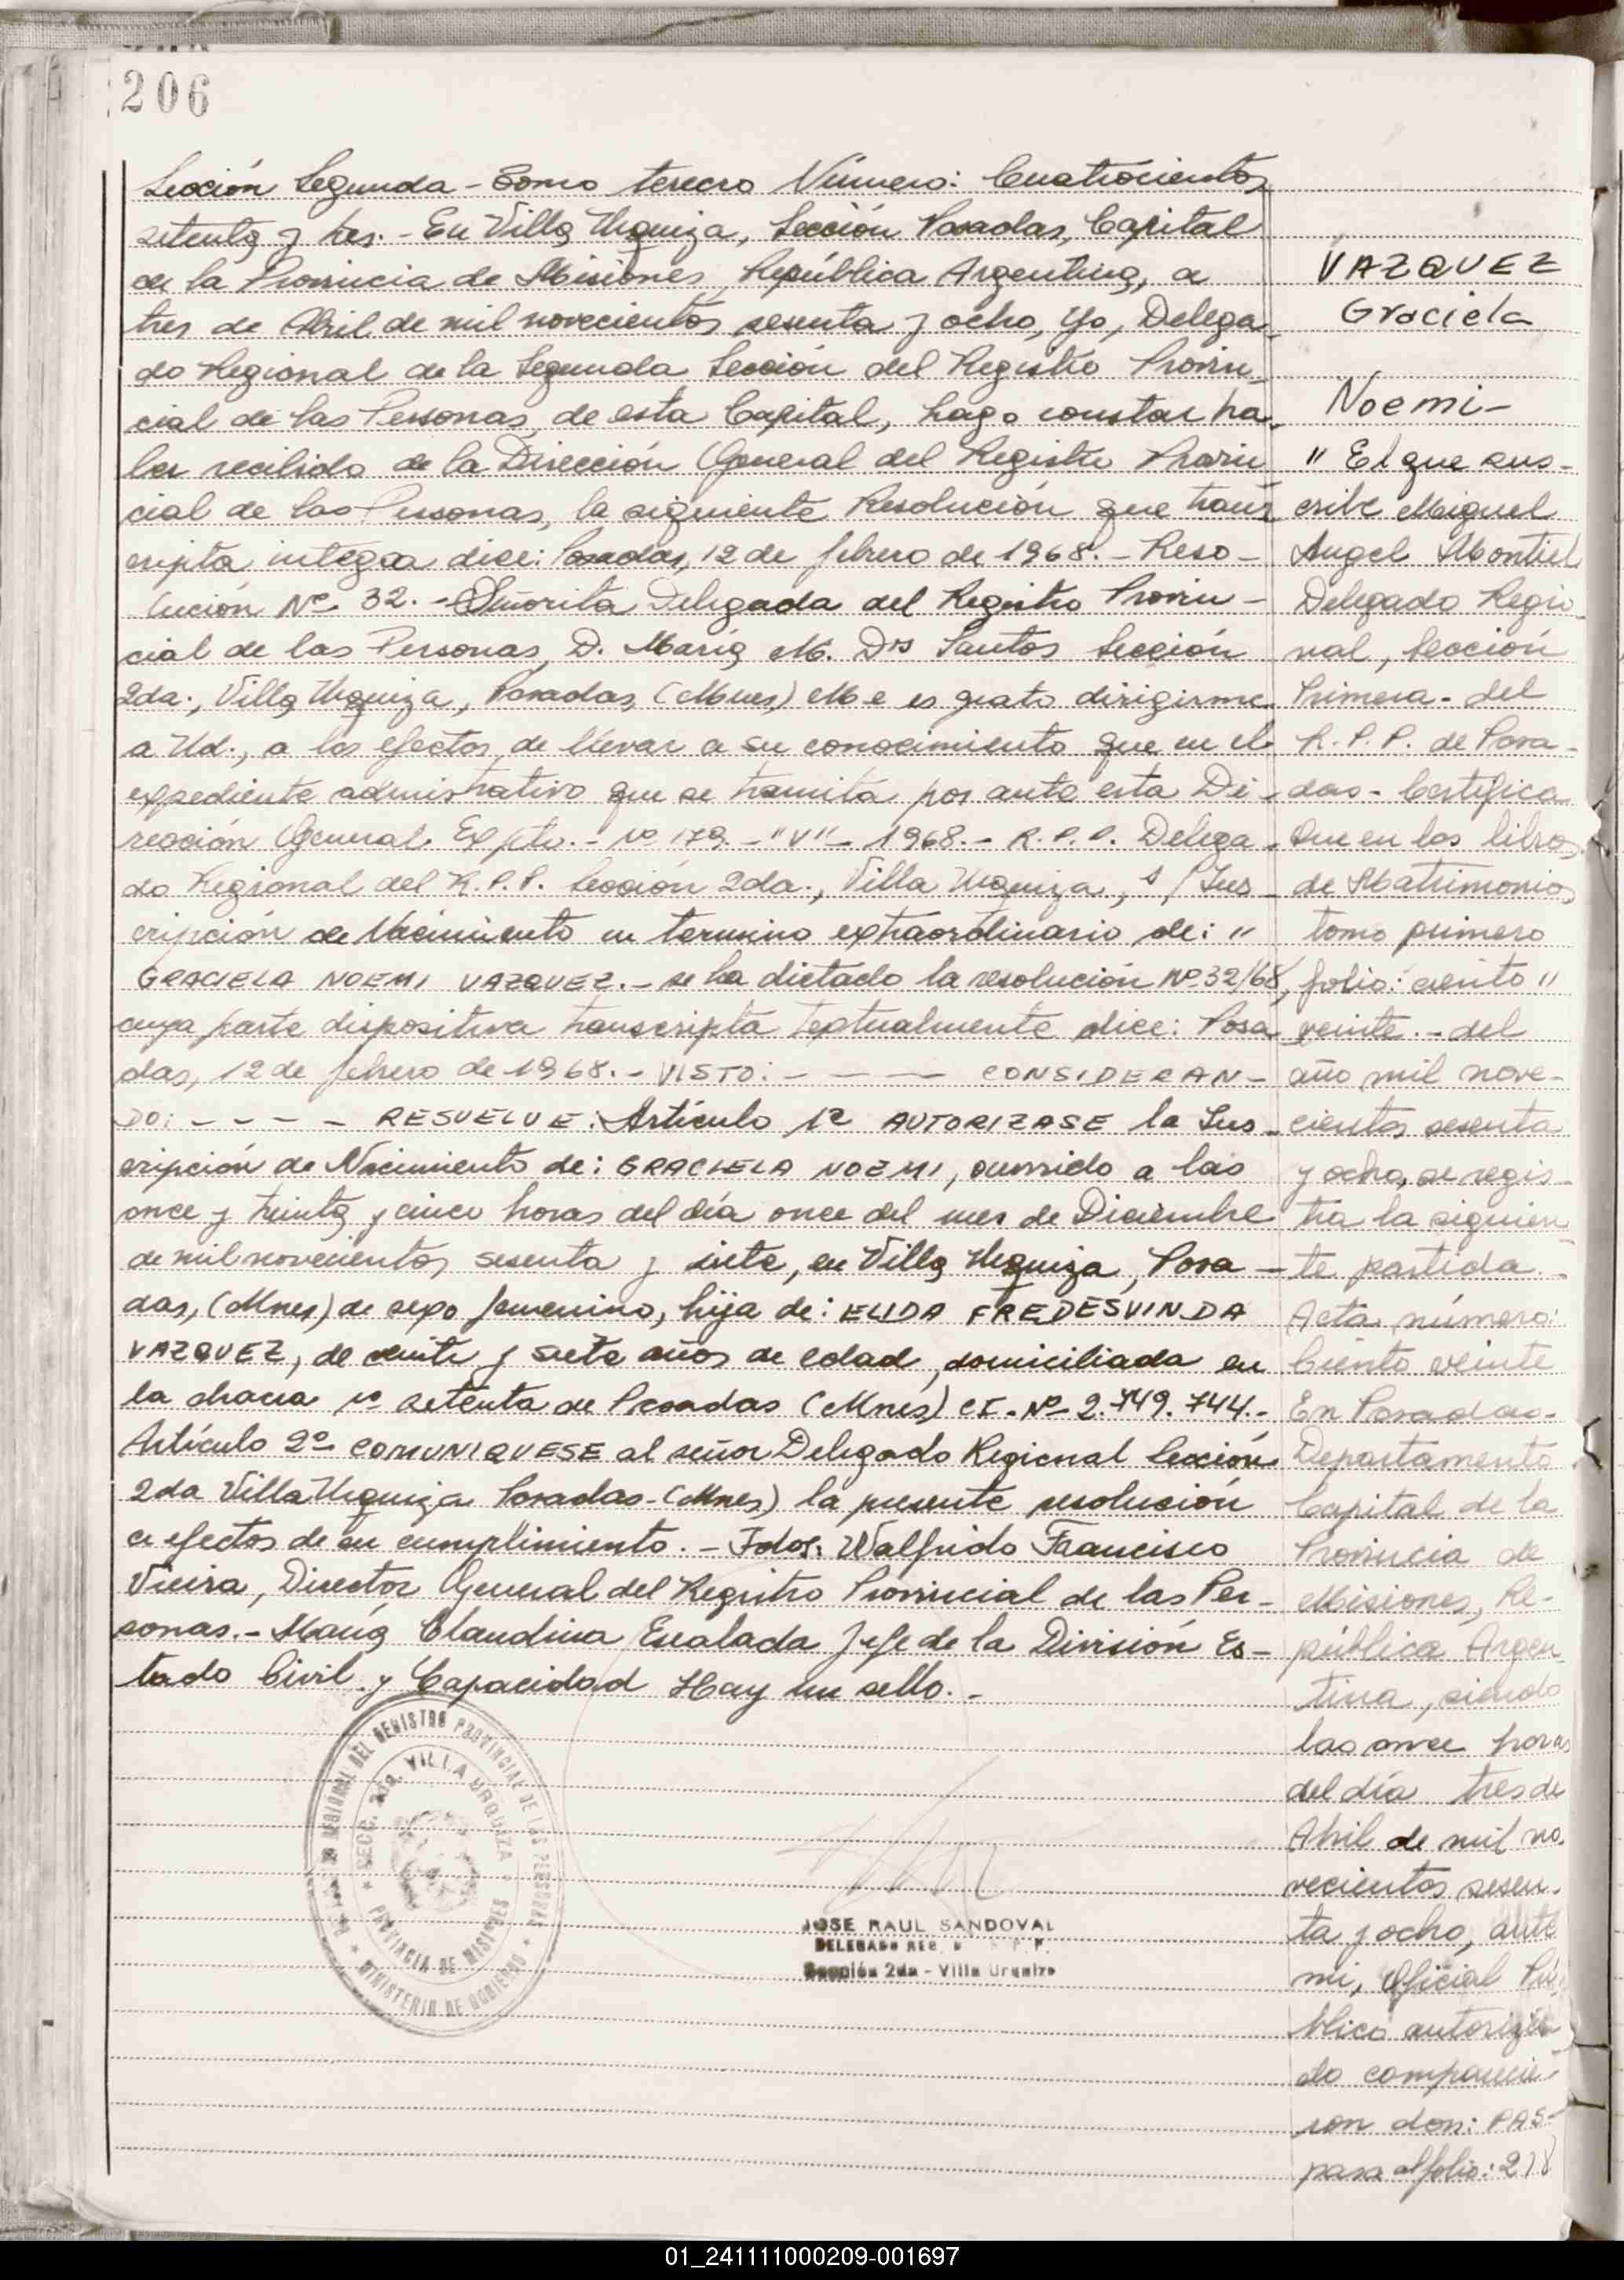 206
Sección Segunda - Tomo tercero Número: Cuatrocientos
setenta y tres. - En Villa Urquiza, Sección Posadas, Capital
de la Provincia de Misiones, República Argentina, a
tres de Abril de mil novecientos sesenta y ocho, Yo, Delega-
do Regional de la Segunda Sección del Registro Provin-
cial de las Personas, de esta Capital, hago constar ha-
ber recibido de la Dirección General del Registro Provin
cial de las Personas, la siguiente Resolución que trans
cripta integra dice: Posadas, 12 de febrero de 1968. - Reso-
lución Nº 32. - Señorita Delegada del Registro Provin-
cial de las Personas, D. María M. Dos Santos Sección
2da., Villa Urquiza, Posadas, (Mnes) Me es grato dirigirme
a Ud., a los efectos de llevar a su conocimiento que en el
expediente admistrativo que se tramita por ante esta Di-
rección General Expte. - Nº 179 - "V" - 1968. - R.P.P. Delega-
do Regional del R.P.P. Sección 2da., Villa Urquiza, s/Ins-
cripción de Nacimiento en termino extraordinario de: "
GRACIELA NOEMI VAZQUEZ. - se ha dictado la resolución Nº 32/68,
cuya parte dispositiva transcripta textualmente dice: Posa
das, 12 de febrero de 1968. - VISTO: - - - - CONSIDERAN-
DO: - - - - RESUELVE: Artículo 1º AUTORIZASE la Ins-
cripción de Nacimiento de: GRACIELA NOEMI, ocurrido a las
once y treinta y cinco horas del día once del mes de Diciembre
de mil novecientos sesenta y siete, en Villa Urquiza, Posa-
das, (Mnes) de sexo femenino, hija de: ELIDA FREDESVINDA
VAZQUEZ, de veinte y siete años de edad, domiciliada en
la chacra Nº setenta de Posadas (Mnes) CI. Nº 2.749.744.-
Artículo 2º COMUNIQUESE al señor Delegado Regional Sección
2da Villa Urquiza Posadas - (Mnes) la presente resolución
a efectos de su cumplimiento. - Fdos. Walfrido Francisco
Vieira, Director General del Registro Provincial de las Per-
sonas. - María Claudina Escalada Jefe de la División Es-
tado Civil y Capacidad Hay un sello. -
REGIONAL DEL REGISTRO PROVINCIAL DE LAS PERSONAS
SECC. 2da. VILLA URQUIZA
PROVINCIA DE MISIONES
MINISTERIO DE GOBIERNO
JOSE RAUL SANDOVAL
DELEGADO REG. P. P.
Sección 2da - Villa Urquiza
VAZQUEZ
Graciela
Noemi -
" El que sus-
cribe Miguel
Angel Montiel
Delegado Regio
nal, Sección
Primera - del
R.P.P. de Posa-
das - Certifica
Que en los libros
de Matrimonios
tomo primero
folio: ciento "
veinte. - del
año mil nove-
cientos sesenta
y ocho, se regis-
tra la siguien
te partida. -
Acta número:
Ciento veinte
En Posadas -
Departamento
Capital de la
Provincia de
Misiones, Re-
pública Argen-
tina, siendo
las once horas
del día tres de
Abril de mil no-
vecientos sesen-
ta y ocho, ante
mi, Oficial Pú-
blico autoriza
do comparecie-
ron don: PAS-
pasa al folio: 218
01_241111000209-001697